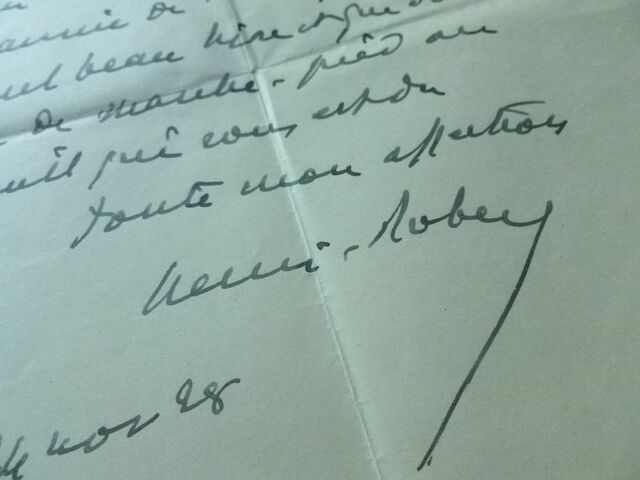 beau livre
de marche-pied au
qui vous est du
toute mon affection
Henri-Robert
nov 28